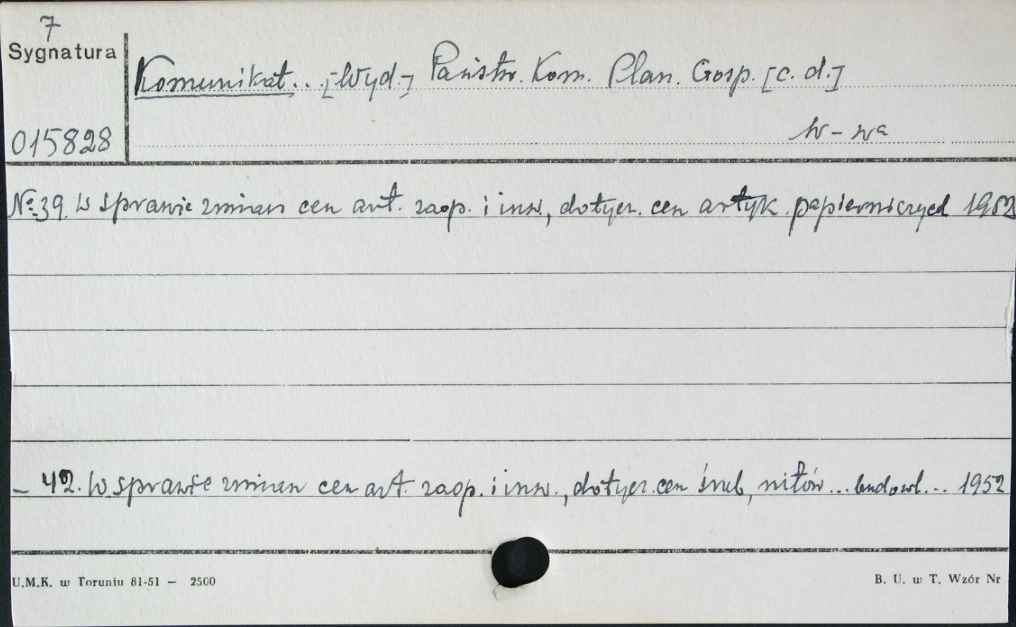 7
Sygnatura
Komunikat... [Wyd.] Państw. Kom. Plan. Gosp. [c. d.]
015828
W-wa
No 39. W sprawie zmian cen art. zaop. i inw., dotycz. cen artyk. papierniczych 1952
— 42. W sprawie zmian cen art. zaop. i inw., dotycz. cen śrub, nitów... budowl... 1952
U.M.K. w Toruniu 81-51 — 2500
B. U. w T. Wzór Nr